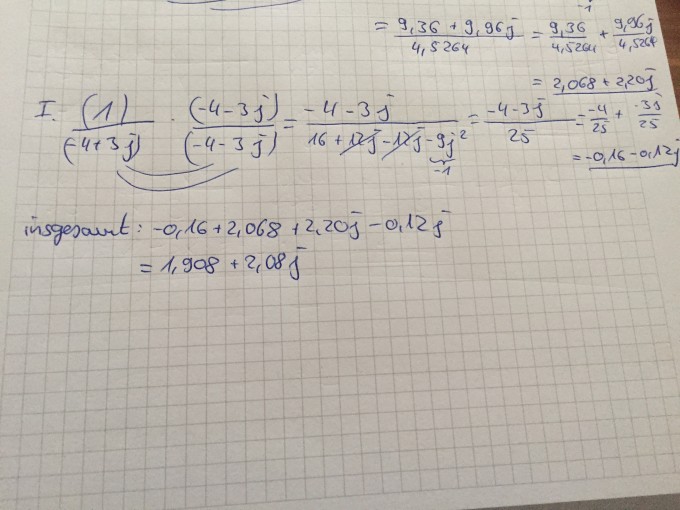 -1
= 9,36 + 9,96j / 4,5264 = 9,36 / 4,5264 + 9,96j / 4,5264
= 2,068 + 2,20j
I. (1) / (-4+3j) · (-4-3j) / (-4-3j) = -4-3j / 16+12j-12j-9j² = -4-3j / 25 = -4/25 + -3j/25
-1
= -0,16-0,12j
insgesamt: -0,16+2,068+2,20j-0,12j
= 1,908 + 2,08j